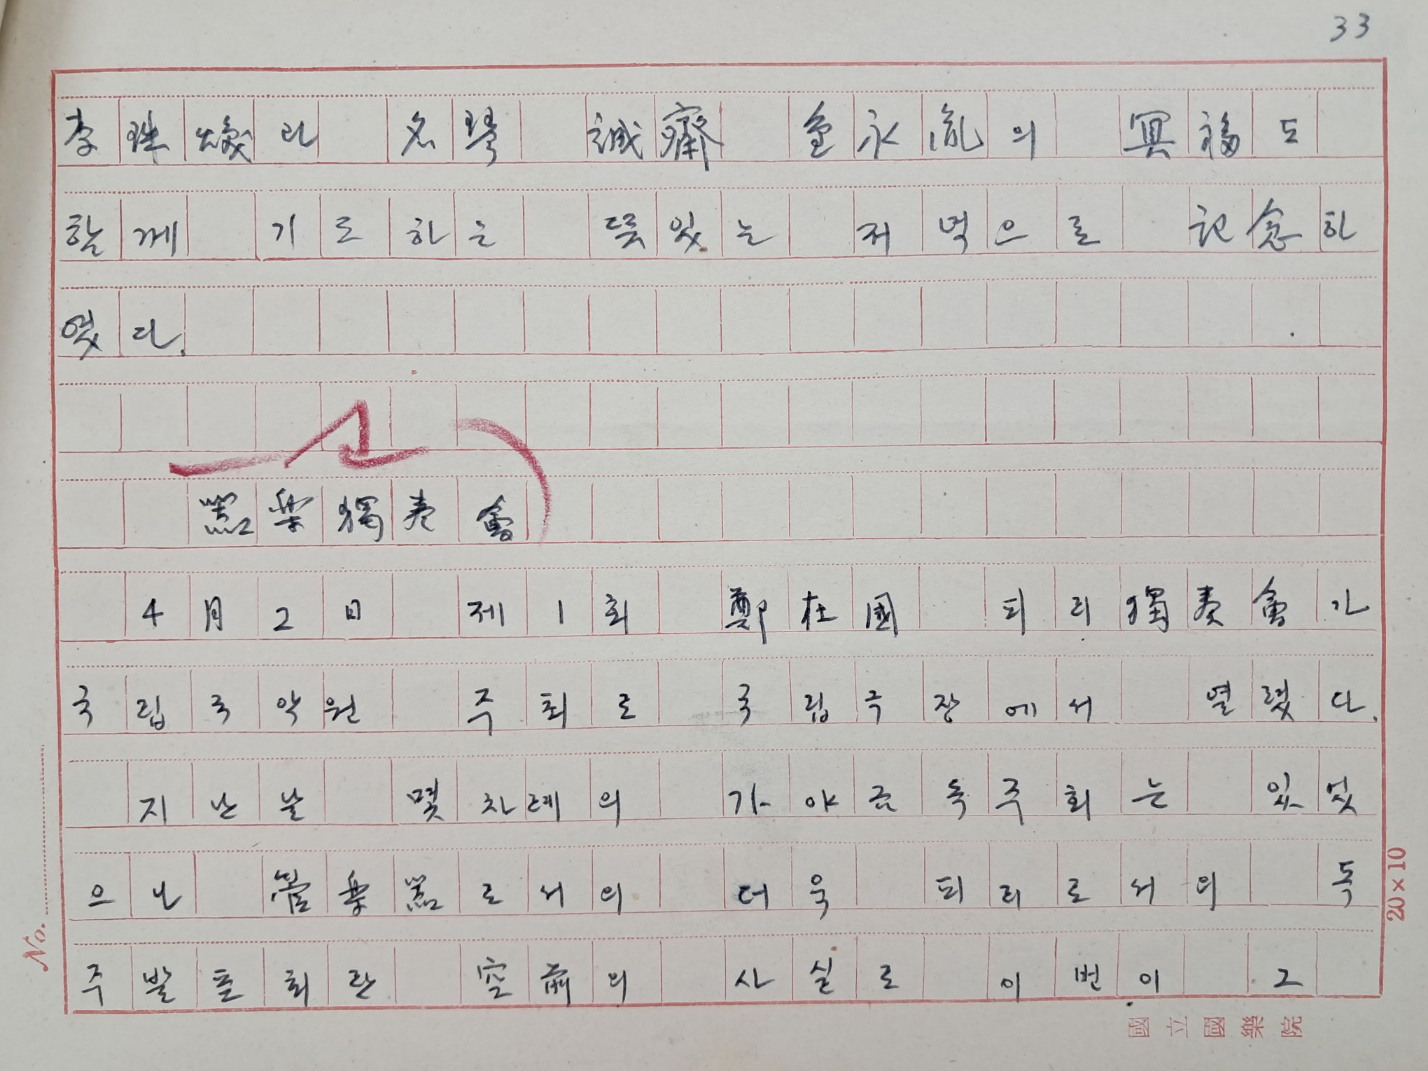 33
李珠煥과 名琴 誠齋 金永胤의 冥福도
함께 기도하는 뜻있는 저녁으로 記念하
였다.
器楽獨奏會
4月2日 제1회 鄭在國 피리獨奏會가
국립국악원 주최로 국립극장에서 열렸다.
지난날 몇차례의 가야금독주회는 있었
으나 管楽器로서의 더욱 피리로서의 독
주발표회란 空前의 사실로 이번이 그
No.
20×10
國立國樂院